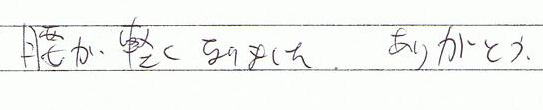 腰が軽くなりました. ありがとう.